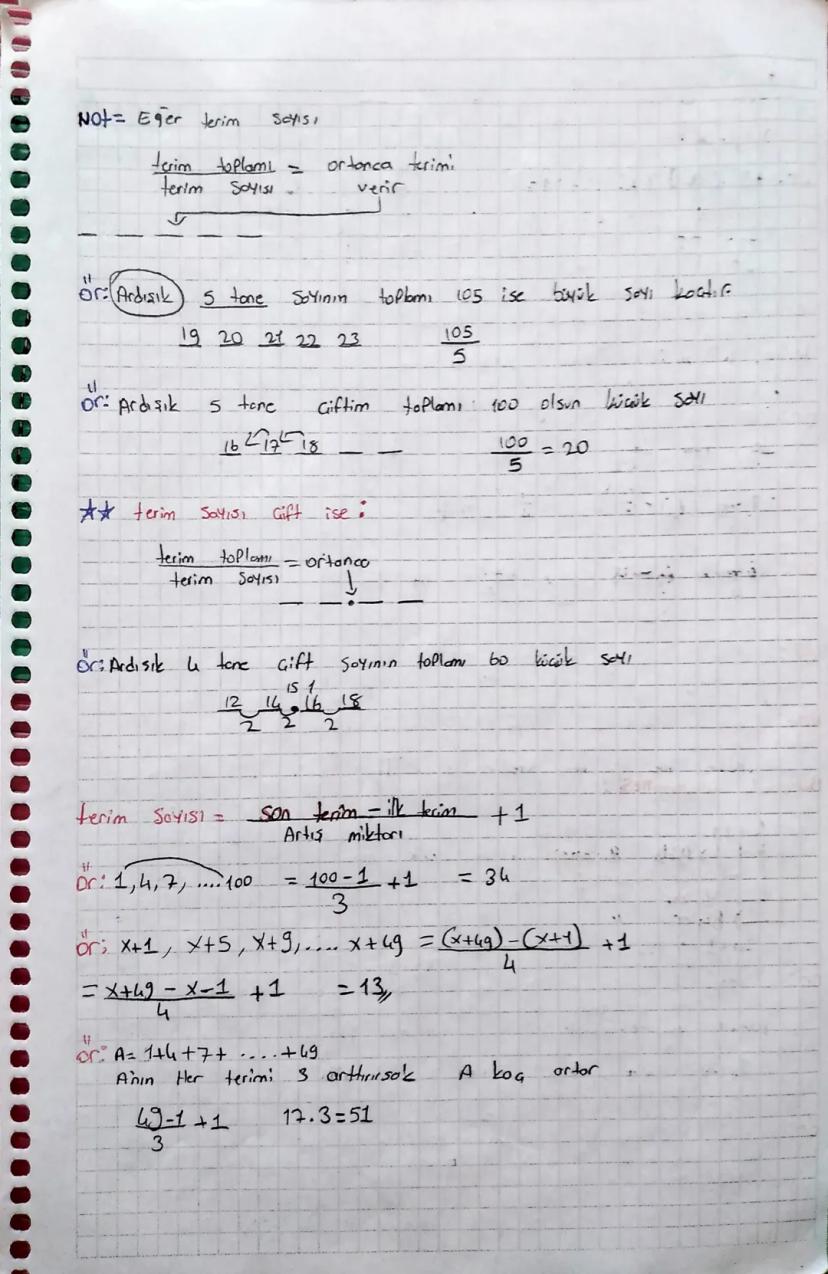 NOt= Eğer terim sayısı
terim toplamı = ortanca terimi
terim sayısı verir
ör: Ardışık 5 tane sayının toplamı 105 ise büyük sayı kaçtır
19 20 21 22 23 105
5
ör: Ardışık 5 tane çiftim toplamı 100 olsun küçük sayı
16 17 18 100 = 20
5
★★ terim sayısı çift ise:
terim toplamı = ortanca
terim sayısı
ör: Ardışık 4 tane çift sayının toplamı 60 küçük sayı
15
12 14 16 18
2 2 2
terim sayısı = son terim - ilk terim + 1
Artış miktarı
ör: 1, 4, 7, ....100 = 100-1 +1 = 34
3
ör: x+1, x+5, x+9, .... x+49 = (x+49)-(x+1) +1
4
= x+49-x-1 +1 = 13
4
ör: A= 1+4+7+ .....+49
A'nın Her terimi 3 arttırırsak A kaç artar
49-1 +1 17.3=51
3